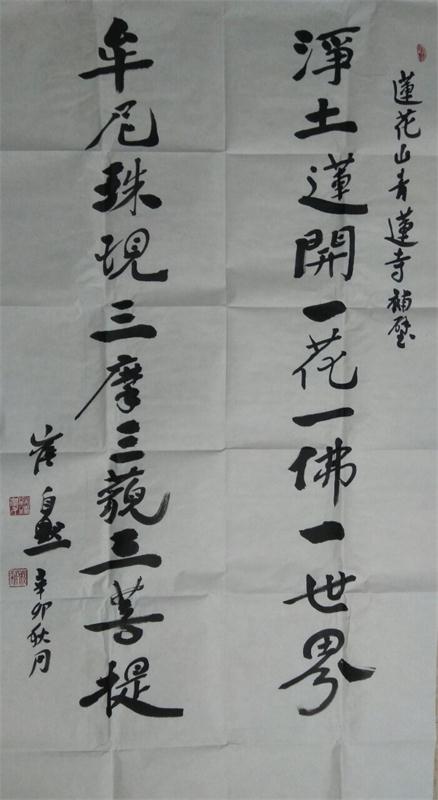 蓮花山青蓮寺補壁
淨土蓮開一花一佛一世界
牟尼珠現三摩三藐三菩提
崔自默
辛卯秋月